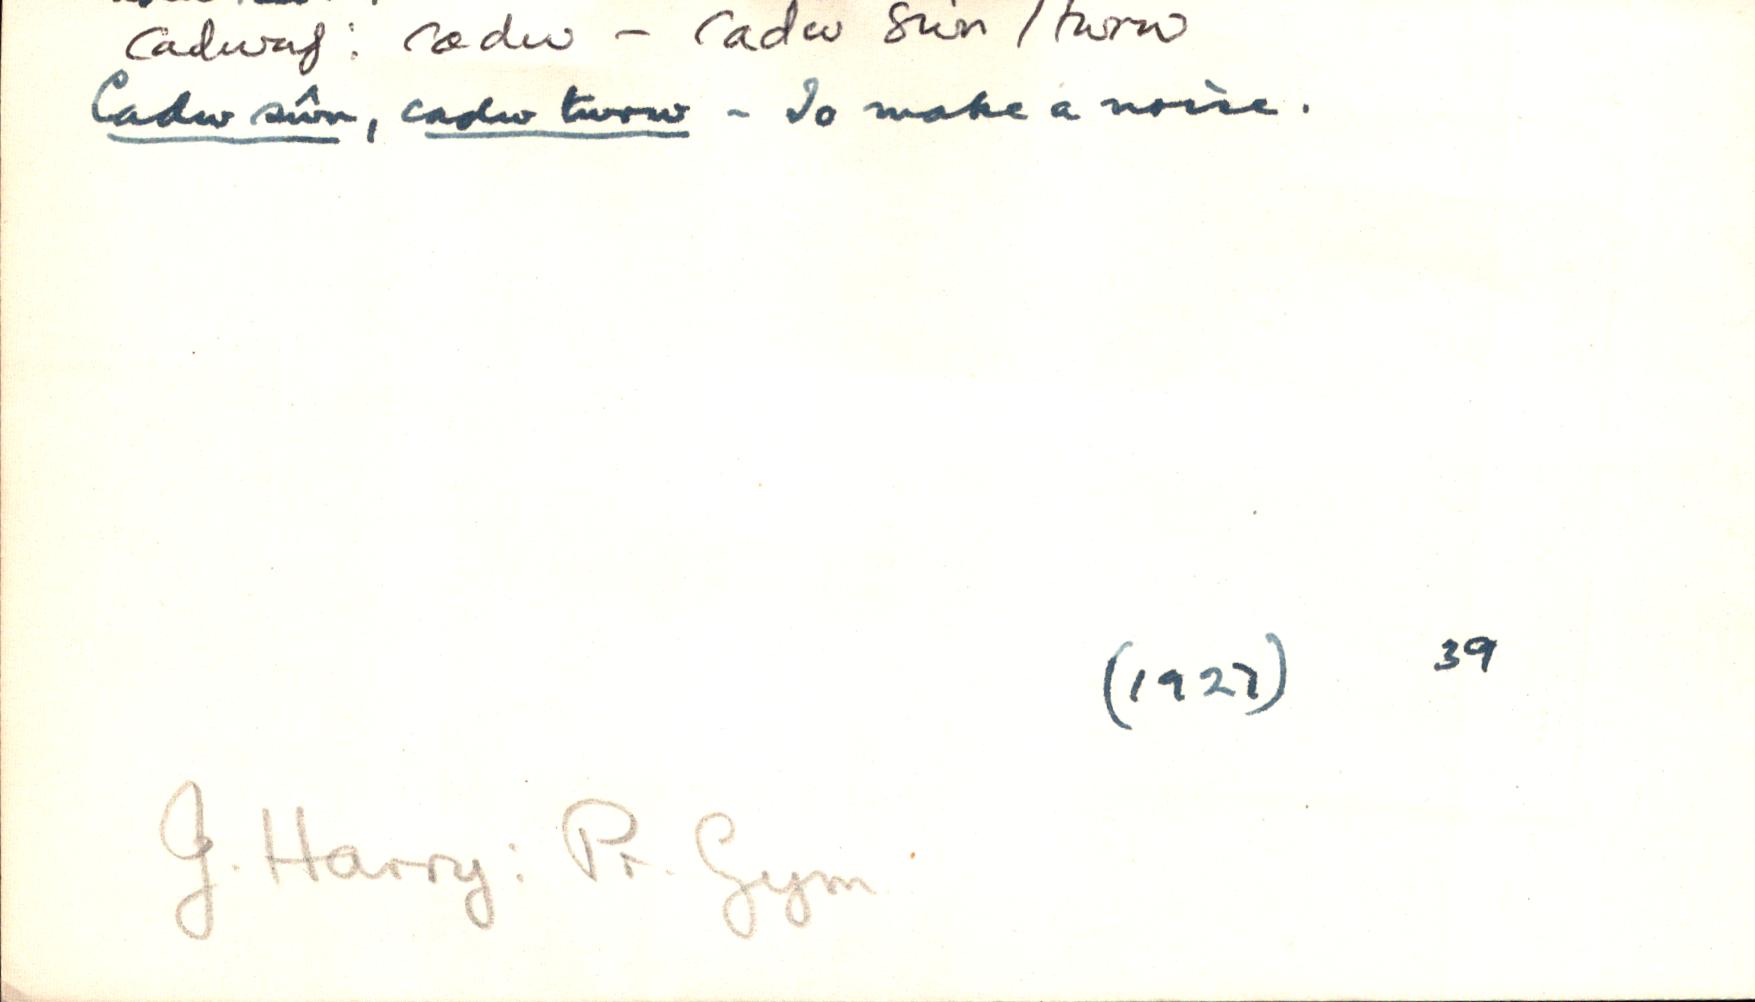 cadwaf: cadw - cadw sŵn / twrw
Cadw sŵn, cadw twrw - To make a noise.
(1927) 39
G. Harry: Pr. Gym